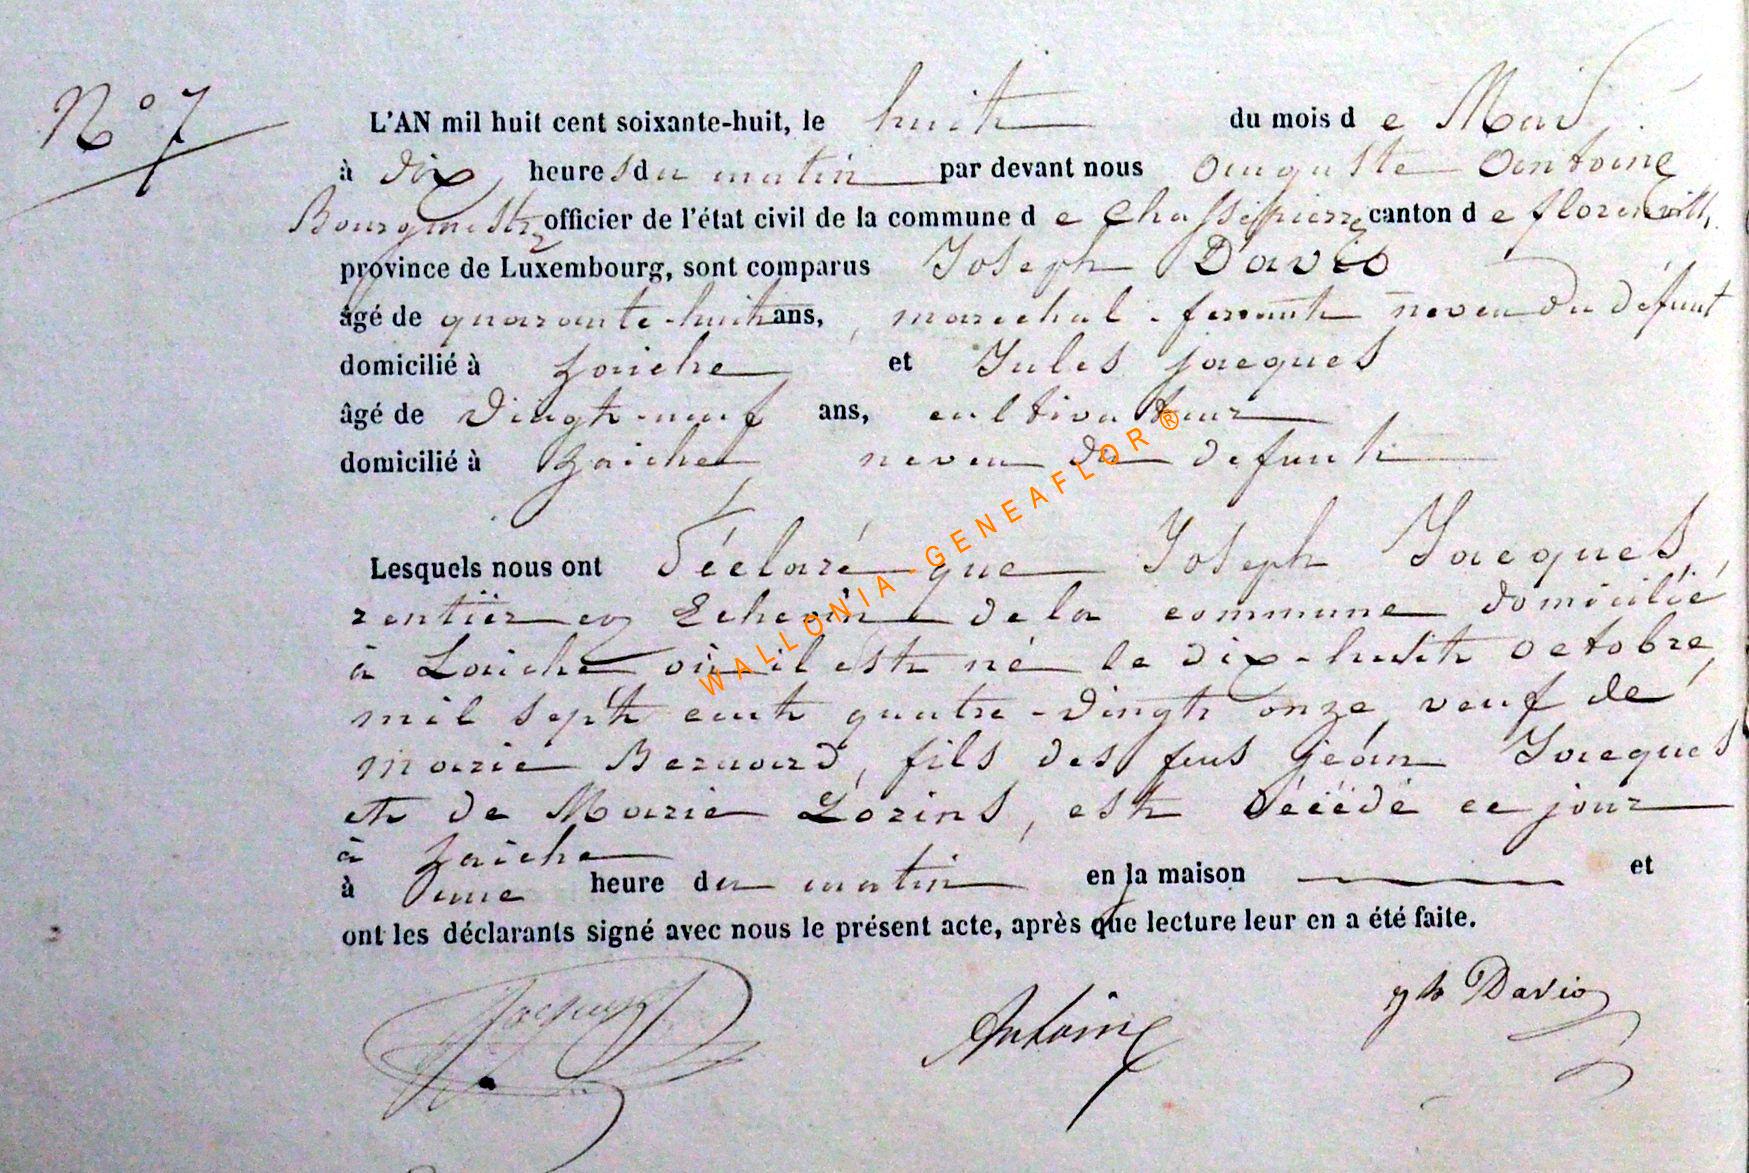 N° 7
L'AN mil huit cent soixante-huit, le huit du mois de Mai
à dix heures du matin par devant nous Auguste Antoine
Bourgmestre officier de l'état civil de la commune de Chassepierre canton de florenville
province de Luxembourg, sont comparus Joseph Davio
âgé de quarante-huit ans, maréchal-ferrant neveu du défunt
domicilié à Laiche et Jules Jacques
âgé de vingt-neuf ans, cultivateur
domicilié à Laiche neveu du defunt
Lesquels nous ont déclaré que Joseph Jacques,
rentier Echevin de la commune domicilié
à Laiche où il est né le dix-huit octobre,
mil sept cent quatre-vingt onze, veuf de
marie Bernard, fils des feus jean Jacques
et de Marie Lorins, est décédé ce jour
à Laiche
à une heure du matin en la maison et
ont les déclarants signé avec nous le présent acte, après que lecture leur en a été faite.
Jacques Antoine jh Davio
WALLONIA-GENEAFLOR ®